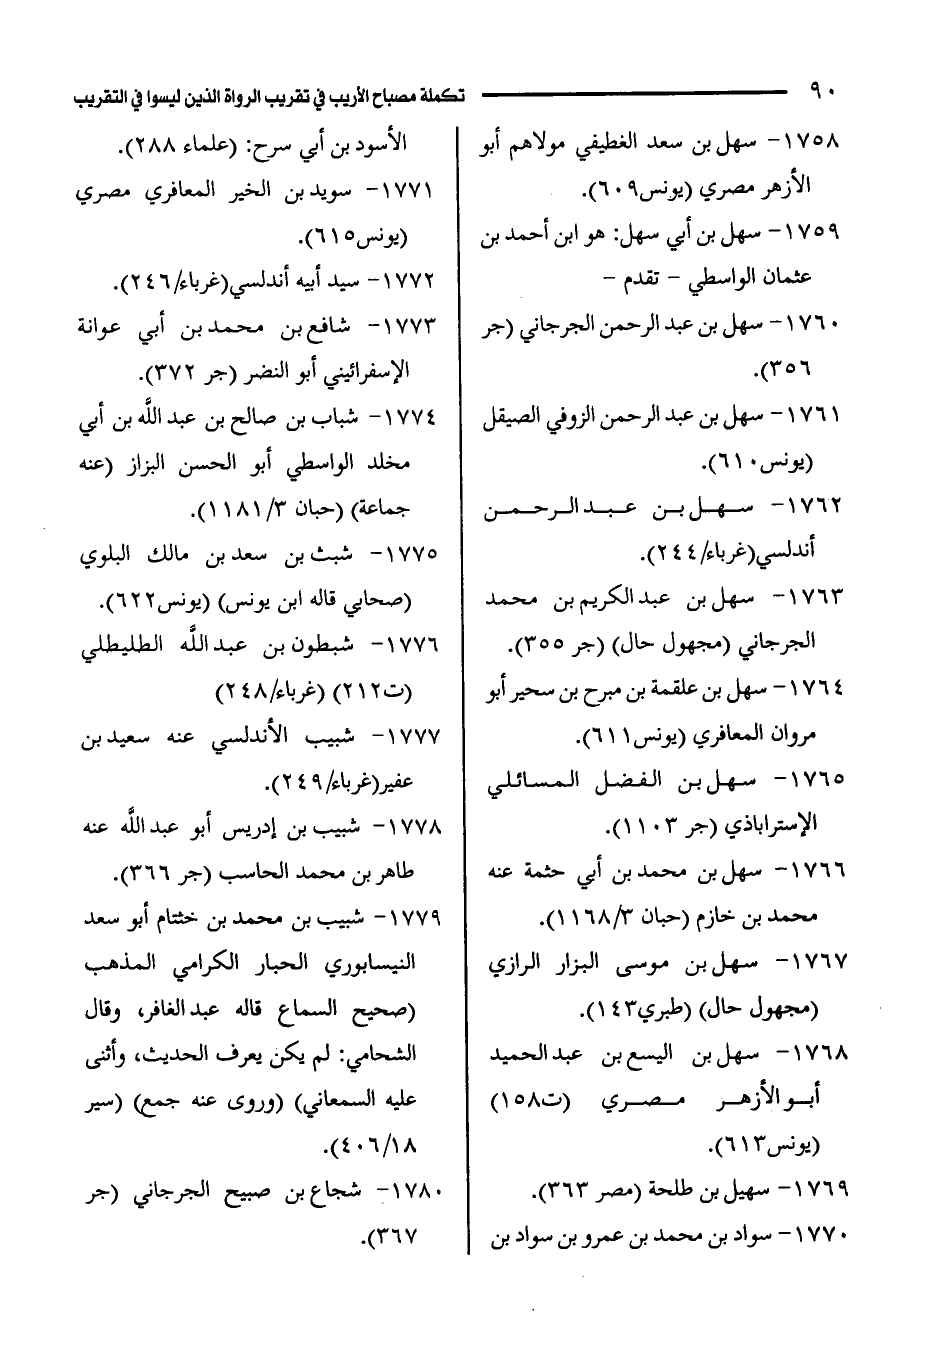 ٩٠ تكملة مصباح الأريب في تقريب الرواة الذين ليسوا في التقريب
١٧٥٨- سهل بن سعد الغطيفي مولاهم أبو
الأزهر مصري (يونس٦٠٩).
١٧٥٩- سهل بن أبي سهل: هو ابن أحمد بن
عثمان الواسطي - تقدم -
١٧٦٠- سهل بن عبد الرحمن الجرجاني (جر
٣٥٦).
١٧٦١- سهل بن عبد الرحمن الزوفي الصيقل
(يونس٦١٠).
١٧٦٢- سهل بن عبد الرحمن
أندلسي(غرباء/٢٤٤).
١٧٦٣- سهل بن عبد الكريم بن محمد
الجرجاني (مجهول حال) (جر ٣٥٥).
١٧٦٤- سهل بن علقمة بن مبرح بن سحير أبو
مروان المعافري (يونس٦١١).
١٧٦٥- سهل بن الفضل المسائلي
الإستراباذي (جر ١١٠٣).
١٧٦٦- سهل بن محمد بن أبي حثمة عنه
محمد بن خازم (حبان ١١٦٨/٣).
١٧٦٧- سهل بن موسى البزار الرازي
(مجهول حال) (طبري١٤٣).
١٧٦٨- سهل بن اليسع بن عبد الحميد
أبو الأزهر مصري (ت١٥٨)
(يونس٦١٣).
١٧٦٩- سهيل بن طلحة (مصر ٣٦٣).
١٧٧٠- سواد بن محمد بن عمرو بن سواد بن
الأسود بن أبي سرح: (علماء ٢٨٨).
١٧٧١- سويد بن الخير المعافري مصري
(يونس٦١٥).
١٧٧٢- سيد أبيه أندلسي(غرباء/٢٤٦).
١٧٧٣- شافع بن محمد بن أبي عوانة
الإسفرائيني أبو النضر (جر ٣٧٢).
١٧٧٤- شباب بن صالح بن عبد اللَّه بن أبي
مخلد الواسطي أبو الحسن البزاز (عنه
جماعة) (حبان ١١٨١/٣).
١٧٧٥- شبث بن سعد بن مالك البلوي
(صحابي قاله ابن يونس) (يونس٦٢٢).
١٧٧٦- شبطون بن عبد اللَّه الطليطلي
(ت٢١٢) (غرباء/٢٤٨)
١٧٧٧- شبيب الأندلسي عنه سعيد بن
عفير(غرباء/٢٤٩).
١٧٧٨- شبيب بن إدريس أبو عبد اللَّه عنه
طاهر بن محمد الحاسب (جر ٣٦٦).
١٧٧٩- شبيب بن محمد بن خثتام أبو سعد
النيسابوري الحبار الكرامي المذهب
(صحيح السماع قاله عبد الغافر، وقال
الشحامي: لم يكن يعرف الحديث، وأثنى
عليه السمعاني) (وروى عنه جمع) (سير
٤٠٦/١٨).
١٧٨٠- شجاع بن صبيح الجرجاني (جر
٣٦٧).